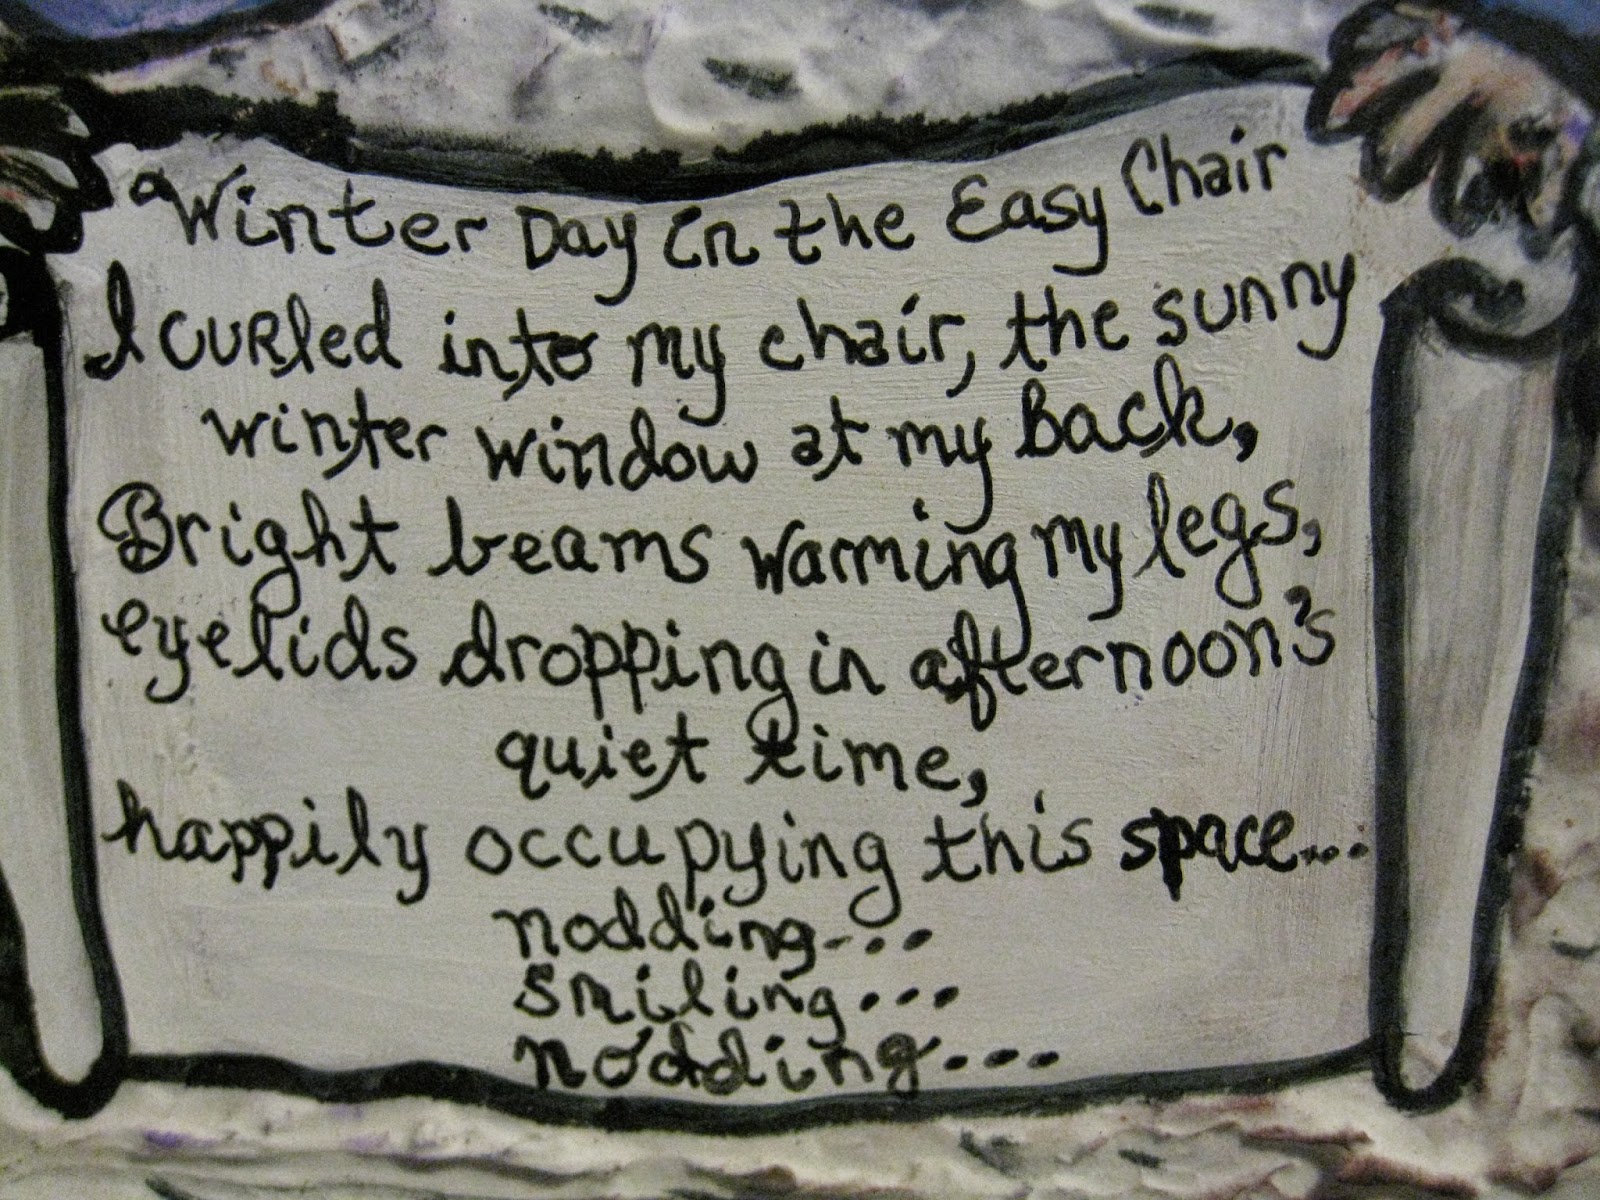 a Winter Day in the Easy Chair
I curled into my chair, the sunny
winter window at my Back,
Bright beams warming my legs,
eyelids dropping in afternoon's
quiet time,
happily occupying this space...
nodding...
smiling...
nodding....